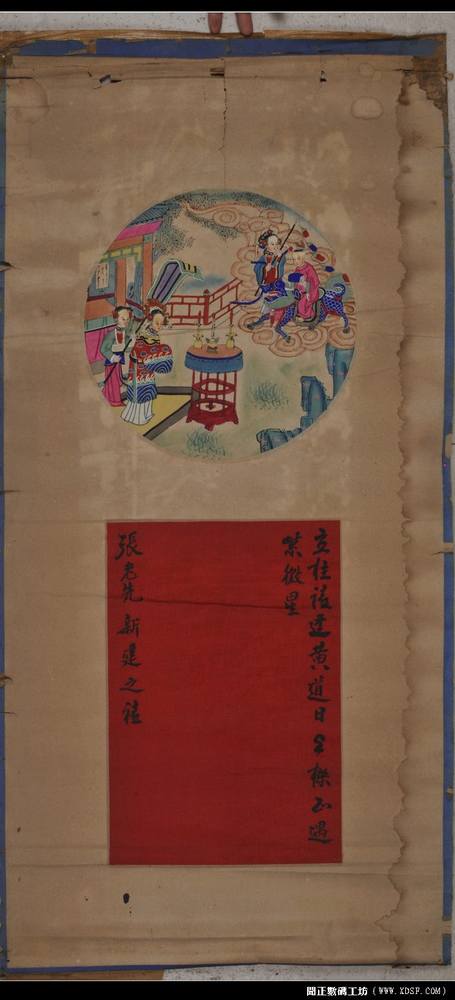 立柱族逢黄道日上樑正遇
紫微星
張老先新建之禧
聞正數碼工坊（WWW.XDSF.COM）